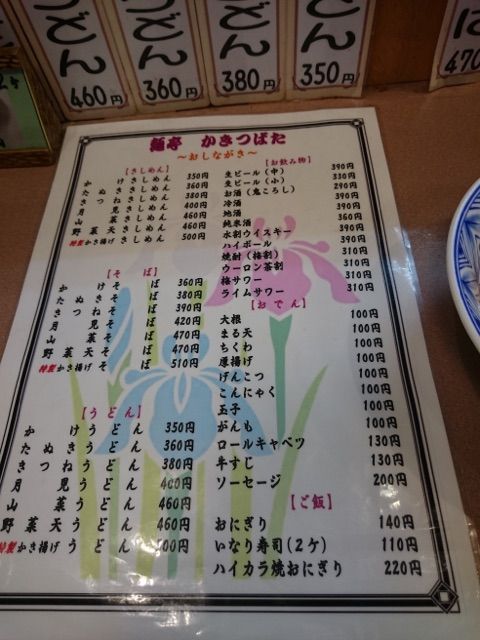 どん
460円
どん
360円
どん
380円
どん
350円
470円
麺亭 かきつばた
~おしながき~
【きしめん】
かけきしめん 350円
たぬききしめん 360円
きつねきしめん 380円
月見きしめん 400円
山菜きしめん 460円
野菜天きしめん 460円
特製かき揚げきしめん 500円
【そば】
かけそば 360円
たぬきそば 380円
きつねそば 390円
月見そば 420円
山菜そば 470円
野菜天そば 470円
特製かき揚げそば 510円
【うどん】
かけうどん 350円
たぬきうどん 360円
きつねうどん 380円
月見うどん 400円
山菜うどん 460円
野菜天うどん 460円
特製かき揚げうどん 500円
【お飲み物】
生ビール(中) 390円
生ビール(小) 330円
お酒(鬼ころし) 290円
冷酒 390円
地酒 390円
純米酒 360円
水割ウイスキー 390円
ハイボール 390円
焼酎(梅割) 310円
ウーロン茶割 310円
梅サワー 310円
ライムサワー 310円
【おでん】
大根 100円
まる天 100円
ちくわ 100円
厚揚げ 100円
げんこつ 100円
こんにゃく 100円
玉子 100円
がんも 100円
ロールキャベツ 130円
牛すじ 130円
ソーセージ 200円
【ご飯】
おにぎり 140円
いなり寿司(2ケ) 110円
ハイカラ焼おにぎり 220円